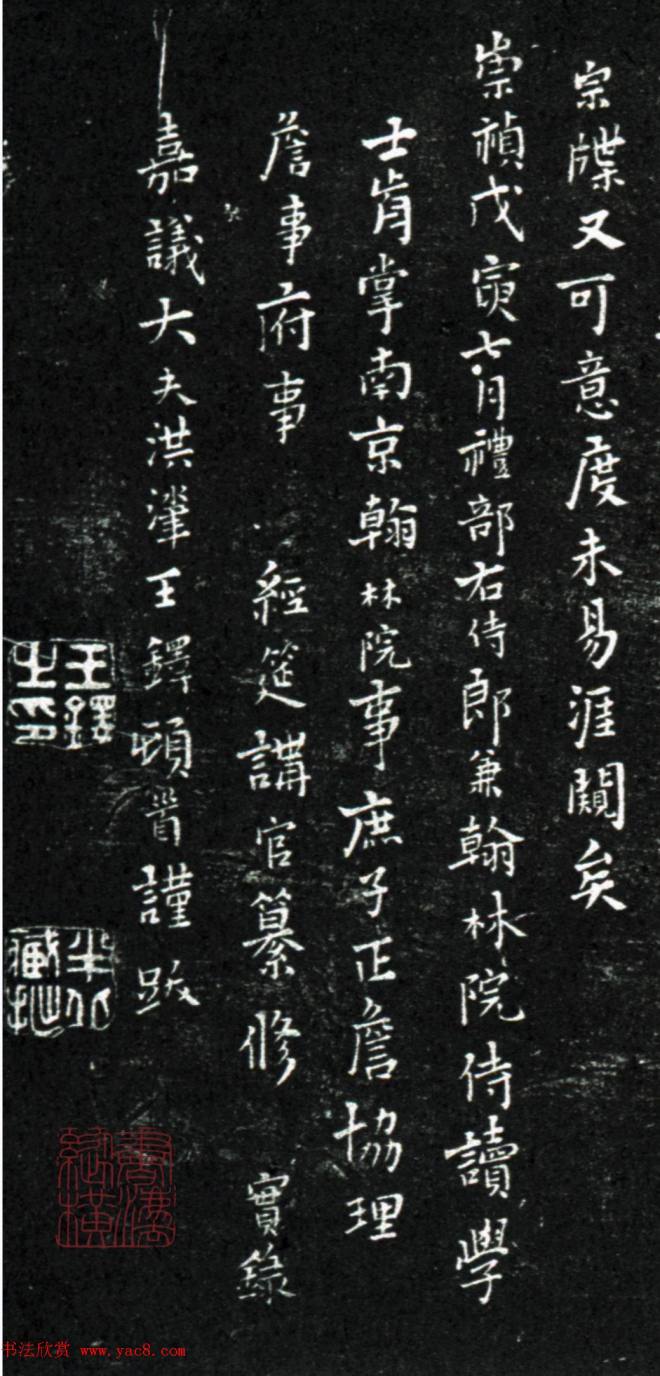 宗牒又可意度未易涯闚矣
崇禎戊寅七月禮部右侍郎兼翰林院侍讀學
士肯掌南京翰林院事庶子正詹協理
詹事府事 經筵講官纂修 實錄
嘉議大夫洪肇王鐸頓首謹跋
王鐸之印
書法欣赏 www.yac8.com